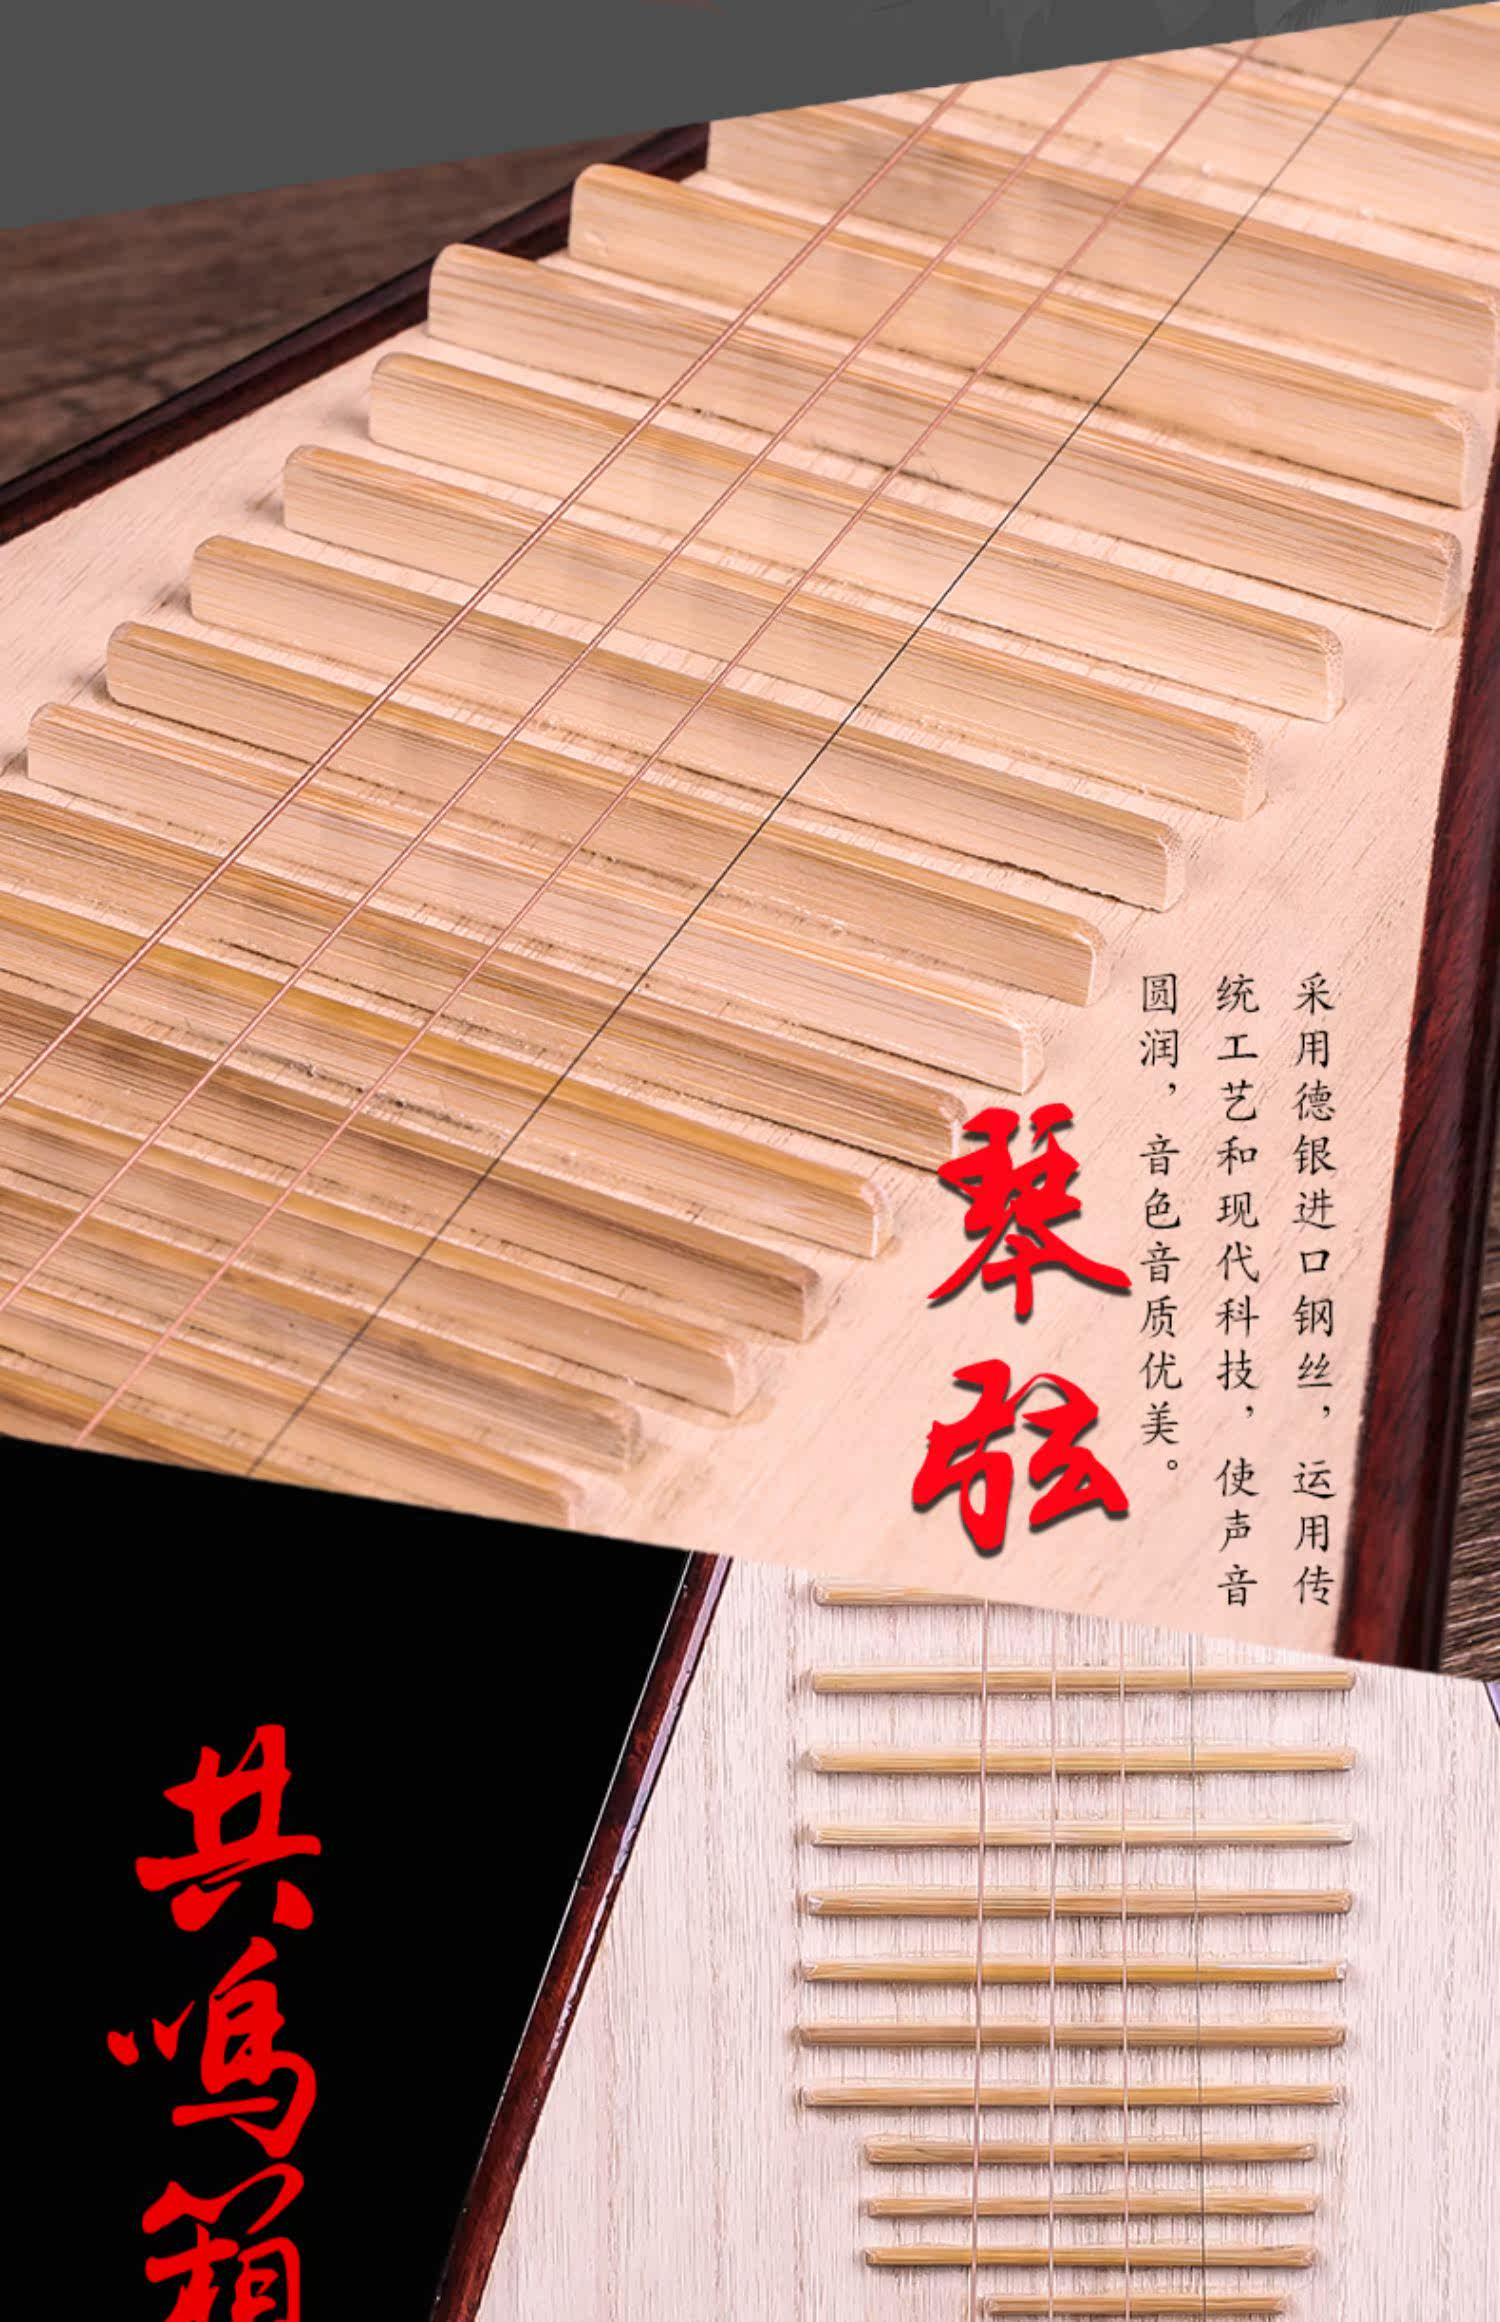 采用德银进口钢丝，运用传
统工艺和现代科技，使声音
圆润，音色音质优美。
琴弦
共鸣箱